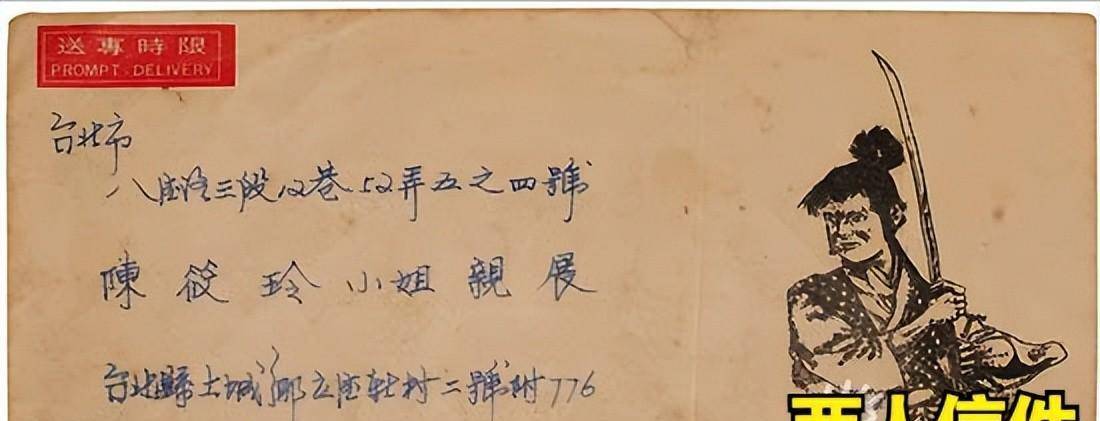 送專時限
PROMPT-DELIVERY
台北市
八德路三段12巷52弄五之四號
陳筱玲小姐親展
台北縣土城鄉立德村二號附776
两人信件